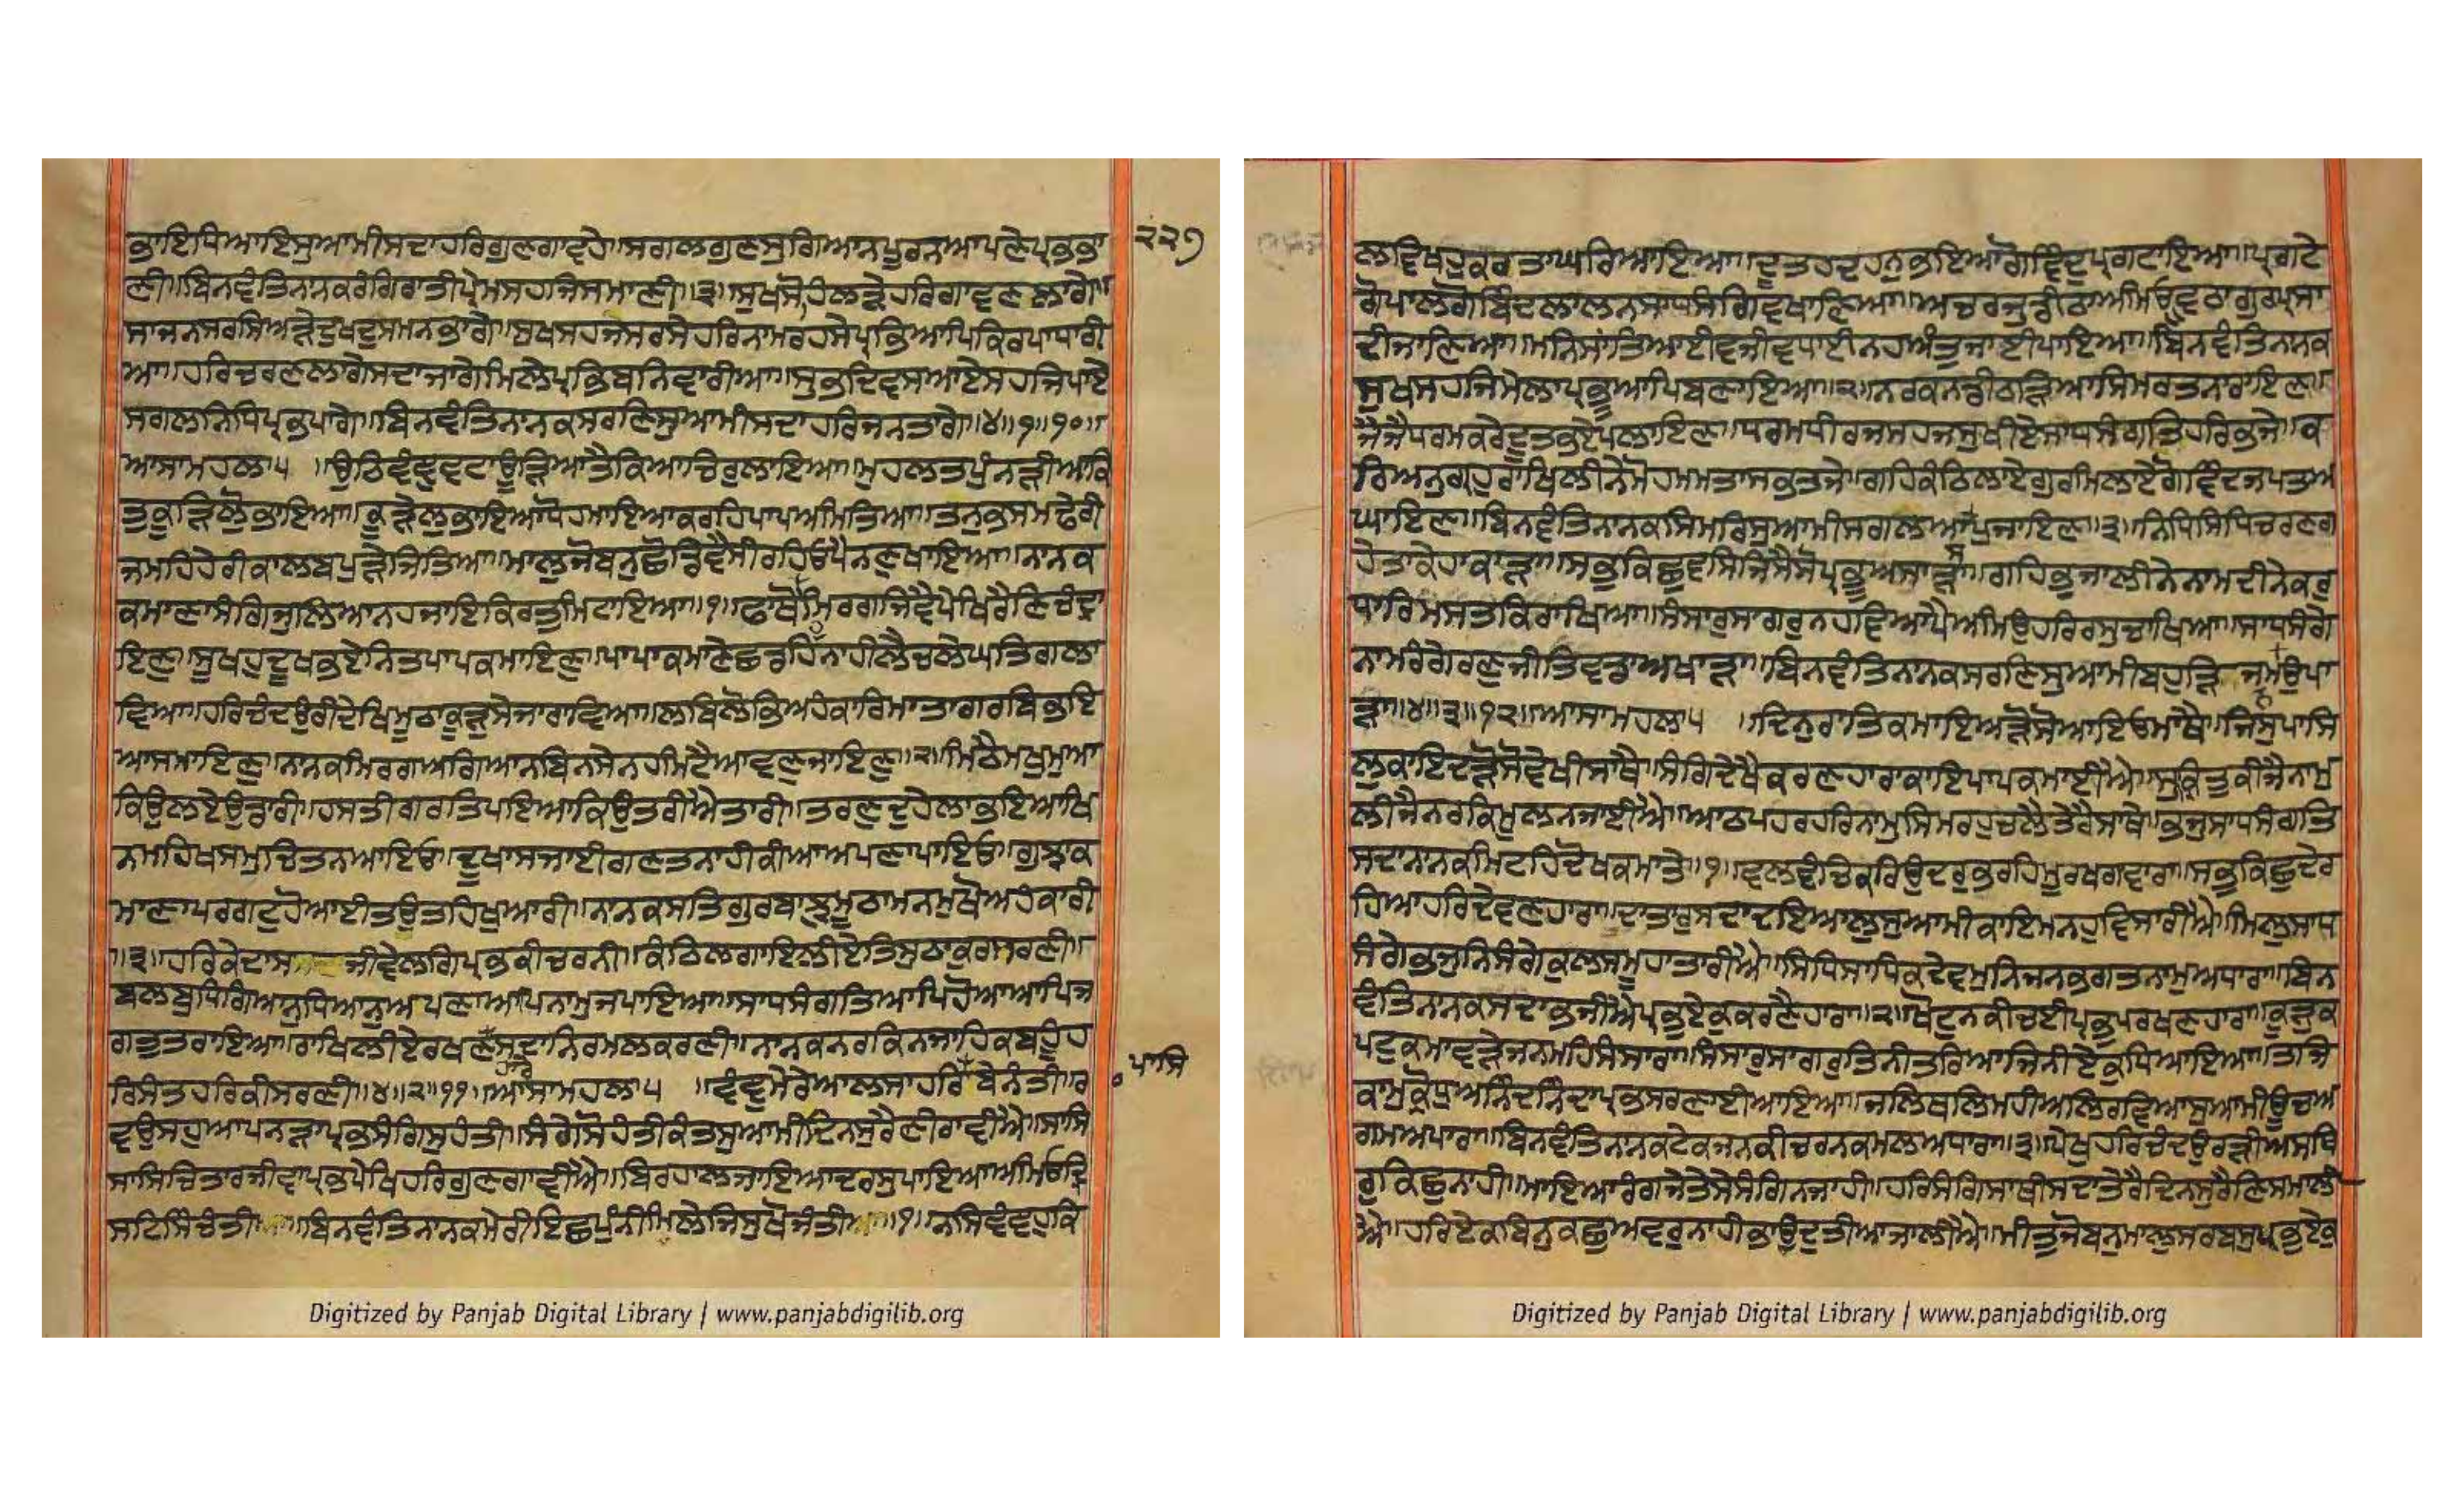 ਭਾਇਧਿਆਇਸੁਆਮੀਸਦਾਹਰਿਗੁਣਗਾਵਹੇ॥ਸਗਲਗੁਣਸੁਗਿਆਨਪੂਰਨਆਪਣੇਪ੍ਰਭਭਾ
੨੨੭
ਣੀ॥ਬਿਨਵੰਤਿਨਾਨਕਰੰਗਿਰਾਤੀਪ੍ਰੇਮਸਹਜਿਸਮਾਣੀ॥੩॥ਸੁਖਸੋਹਿਲੜੇਹਰਿਗਾਵਣਲਾਗੇ॥
ਸਾਜਨਸਰਸਿਅੜੇਦੁਖਦੁਸਮਨਭਾਗੇ॥ਸੁਖਸਹਜਸਰਸੇਹਰਿਨਾਮਰਹਸੇਪ੍ਰਭਿਆਪਿਕਿਰਪਾਧਾਰੀ
ਆ॥ਹਰਿਚਰਣਲਾਗੇਸਦਾਜਾਗੇਮਿਲੇਪ੍ਰਭਿਬਨਿਵਾਰੀਆ॥ਸੁਭਦਿਵਸਆਏਸਹਜਿਪਾਏ
ਸਗਲਨਿਧਿਪ੍ਰਭਪਾਗੇ॥ਬਿਨਵੰਤਿਨਾਨਕਸਰਣਿਸੁਆਮੀਸਦਾਹਰਿਜਨਤਾਗੇ॥੪॥੧॥੧੦॥
ਆਸਾਮਹਲਾ੫ ॥ਉਠਿਵੰਞੁਵਟਾਊੜਿਆਤੈਕਿਆਚਿਰੁਲਾਇਆ॥ਮੁਹਲਤਪੁੰਨੜੀਆਕਿ
ਤੁਕੂੜਿਲੋਭਾਇਆ॥ਕੂੜੇਲੁਭਾਇਆਧੋਹਮਾਇਆਕਰਹਿਪਾਪਅਮਿਤਿਆ॥ਤਨੁਭਸਮਢੇਰੀ
ਜਮਹਿਹੇਰੀਕਾਲਬਪੁੜੇਜਿਤਿਆ॥ਮਾਲੁਜੋਬਨੁਛੋਡਿਵੈਸੀਰਹਿਓਪੈਨਣੁਖਾਇਆ॥ਨਾਨਕ
ਕਮਾਣਾਸੰਗਿਜੁਲਿਆਨਹਜਾਇਕਿਰਤੁਮਿਟਾਇਆ॥੧॥ਫਾਥੋਮਿਰਗਜਿਵੈਪੇਖਿਰੈਣਿਚੰਦ੍ਰਾ
ਇਣੁ॥ਸੂਖਹੁਦੂਖਭਏਨਿਤਪਾਪਕਮਾਇਣੁ॥ਪਾਪਾਕਮਾਣੇਛਡਹਿਨਾਹੀਲੈਚਲੇਘਤਿਗਲਾ
ਵਿਆ॥ਹਰਿਚੰਦਉਰੀਦੇਖਿਮੂਠਾਕੂੜੁਸੇਜਾਰਾਵਿਆ॥ਲਬਿਲੋਭਿਅਹੰਕਾਰਿਮਾਤਾਗਰਬਿਭਇ
ਆਸਮਾਇਣੁ॥ਨਾਨਕਮਿਰਗਅਗਿਆਨਬਿਨਸੇਨਹਮਿਟੈਆਵਣੁਜਾਇਣੁ॥੨॥ਮਿਠੈਮਖੁਮੁਆ
ਕਿਉਲਏਉਡਾਰੀ॥ਹਸਤੀਗਰਤਿਪਇਆਕਿਉਤਰੀਐਤਾਰੀ॥ਤਰਣੁਦੁਹੇਲਾਭਇਆਖਿ
ਨਮਹਿਖਸਮੁਚਿਤਨਆਇਓ॥ਦੂਖਾਸਜਾਈਗਣਤਨਾਹੀਕੀਆਅਪਣਾਪਾਇਓ॥ਗੁਝਾਕ
ਮਾਣਾਪਰਗਟੁਹੋਆਈਤਉਤਹਿਖੁਆਰੀ॥ਨਾਨਕਸਤਿਗੁਰਬਾਝੁਮੂਠਾਮਨਮੁਖੋਅਹੰਕਾਰੀ
॥੩॥ਹਰਿਕੇਦਾਸਜੀਵੇਲਗਿਪ੍ਰਭਕੀਚਰਨੀ॥ਕੰਠਿਲਗਾਇਲੀਏਤਿਸੁਠਾਕੁਰਸਰਣੀ॥
ਬਲਬੁਧਿਗਿਆਨੁਧਿਆਨੁਅਪਣਾਆਪਿਨਾਮੁਜਪਾਇਆ॥ਸਾਧਸੰਗਤਿਆਪਿਹੋਆਆਪਿਜ
ਗਤੁਤਰਾਇਆ॥ਰਾਖਿਲੀਏਰਖਣਸਦਾਨਿਰਮਲਕਰਣੀ॥ਨਾਨਕਨਰਕਿਨਜਾਹਿਕਬਹੂੰਹ
ਹਾਰੈ
ਰਿਸੰਤਹਰਿਕੀਸਰਣੀ॥੪॥੨॥੧੧॥ਆਸਾਮਹਲਾ੫ ॥ਵੰਞੁਮੇਰੇਆਲਸਾਹਰਿਬੇਨੰਤੀ॥ਰ
ਪਾਸਿ
ਵਉਸਹੁਆਪਨੜਾਪ੍ਰਭਸੰਗਿਸੁਹੰਤੀ॥ਸੰਗੇਸੋਹੰਤੀਕੰਤਸੁਆਮੀਦਿਨਸੁਰੈਣੀਰਾਵੀਐ॥ਸਾਸਿ
ਸਾਸਿਚਿਤਾਰਜੀਵਾਪ੍ਰਭਪੇਖਿਹਰਿਗੁਣਗਾਵੀਐ॥ਬਿਰਹਾਲਜਾਇਆਦਰਸੁਪਾਇਆਅਮਿਉਦ੍ਰਿ
ਸਟਿਸਿੰਚੰਤੀ॥ਬਿਨਵੰਤਿਨਾਨਕਮੇਰੀਇਛਪੁੰਨੀਮਿਲੇਜਿਸੁਖੋਜੰਤੀ॥੧॥ਨਸਿਵੰਞਹੁਕਿ
ਲਵਿਖਹੁਕਰਤਾਘਰਿਆਇਆ॥ਦੂਤਹਦਹਨੁਭਇਆਗੋਵਿੰਦੁਪ੍ਰਗਟਾਇਆ॥ਪ੍ਰਗਟੇ
ਗੋਪਾਲਗੋਬਿੰਦਲਾਲਨਸਾਧਸੰਗਿਵਖਾਣਿਆ॥ਅਚਰਜੁਡੀਠਾਅਮਿਉਵੂਠਾਗੁਰਪ੍ਰਸਾ
ਦੀਜਾਣਿਆ॥ਮਨਿਸਾਂਤਿਆਈਵਜੀਵਧਾਈਨਹਅੰਤੁਜਾਈਪਾਇਆ॥ਬਿਨਵੰਤਿਨਾਨਕ
ਸੁਖਸਹਜਿਮੇਲਾਪ੍ਰਭੂਆਪਿਬਣਾਇਆ॥੨॥ਨਰਕਨਡੀਠੜਿਆਸਿਮਰਤਨਾਰਾਇਣ॥
ਜੈਜੈਧਰਮਕਰੇਦੂਤਭਏਪਲਾਇਣ॥ਧਰਮਧੀਰਜਸਹਜਸੁਖੀਏਸਾਧਸੰਗਤਿਹਰਿਭਜੇ॥ਕ
ਰਿਅਨੁਗ੍ਰਹੁਰਾਖਿਲੀਨੇਮੋਹਮਮਤਾਸਭਤਜੇ॥ਗਹਿਕੰਠਿਲਾਏਗੁਰਿਮਿਲਾਏਗੋਵਿੰਦਜਪਤਅ
ਘਾਇਣ॥ਬਿਨਵੰਤਿਨਾਨਕਸਿਮਰਿਸੁਆਮੀਸਗਲਆਸਪੁਜਾਇਣ॥੩॥ਨਿਧਿਸਿਧਿਚਰਣਗ
ਹੇਤਾਕੇਹਾਕਾੜਾ॥ਸਭੁਕਿਛੁਵਸਿਜਿਸੈਸੋਪ੍ਰਭੂਅਸਾੜਾ॥ਗਹਿਭੁਜਾਲੀਨੇਨਾਮਦੀਨੇਕਰੁ
ਧਾਰਿਮਸਤਕਿਰਾਖਿਆ॥ਸੰਸਾਰੁਸਾਗਰੁਨਹਵਿਆਪੈਅਮਿਉਹਰਿਰਸੁਚਾਖਿਆ॥ਸਾਧਸੰਗੇ
ਨਾਮਰੰਗੇਰਣੁਜੀਤਿਵਡਾਅਖਾੜਾ॥ਬਿਨਵੰਤਿਨਾਨਕਸਰਣਿਸੁਆਮੀਬਹੁੜਿਜਮਉਪਾ
ੜਾ॥੪॥੩॥੧੨॥ਆਸਾਮਹਲਾ੫ ॥ਦਿਨੁਰਾਤਿਕਮਾਇਅੜੋਸੋਆਇਓਮਾਥੈ॥ਜਿਸੁਪਾਸਿ
ਲੁਕਾਇਦੜੋਸੋਵੇਖੀਸਾਥੈ॥ਸੰਗਿਦੇਖੈਕਰਣਹਾਰਾਕਾਇਪਾਪਕਮਾਈਐ॥ਸੁਕ੍ਰਿਤੁਕੀਜੈਨਾਮੁ
ਲੀਜੈਨਰਕਿਮੂਲਨਜਾਈਐ॥ਆਠਪਹਰਹਰਿਨਾਮੁਸਿਮਰਹੁਚਲੈਤੇਰੈਸਾਥੇ॥ਭਜੁਸਾਧਸੰਗਤਿ
ਸਦਾਨਾਨਕਮਿਟਹਿਦੋਖਕਮਾਤੇ॥੧॥ਵਲਵੰਚਿਕਰਿਉਦਰੁਭਰਹਿਮੂਰਖਗਾਵਾਰਾ॥ਸਭੁਕਿਛੁਦੇਰ
ਹਿਆਹਰਿਦੇਵਣਹਾਰਾ॥ਦਾਤਰੁਸਦਾਦਇਆਲੁਸੁਆਮੀਕਾਇਮਨਹੁਵਿਸਾਰੀਐ॥ਮਿਲੁਸਾਧ
ਸੰਗੇਭਜੁਨਿਸੰਗੇਕੁਲਸਮੂਹਾਤਾਰੀਐ॥ਸਿਧਿਸਾਧਿਕਦੇਵਮੁਨਿਜਨਭਗਤਨਾਮੁਅਧਾਰਾ॥ਬਿਨ
ਵੰਤਿਨਾਨਕਸਦਾਭਜੀਐਪ੍ਰਭੁਏਕੁਕਰਣੈਹਾਰਾ॥੨॥ਖੋਟੁਨਕੀਚਈਪ੍ਰਭੁਪਰਖਣਹਾਰਾ॥ਕੂੜੁਕ
ਪਟੁਕਮਾਵਦੜੇਜਨਮਹਿਸੰਸਾਰਾ॥ਸੰਸਾਰੁਸਾਗਰੁਤਿਨੀਤਰਿਆਜਿਨੀਏਕੁਧਿਆਇਆ॥ਤਜਿ
ਕਾਮੁਕ੍ਰੋਧੁਅਨਿੰਦਨਿੰਦਾਪ੍ਰਭਸਰਣਾਈਆਇਆ॥ਜਲਿਥਲਿਮਹੀਅਲਿਰਵਿਆਸੁਆਮੀਊਚਅ
ਗਮਅਪਾਰਾ॥ਬਿਨਵੰਤਿਨਾਨਕਟੇਕਜਨਕੀਚਰਨਕਮਲਅਧਾਰਾ॥੩॥ਪੇਖੁਹਰਿਚੰਦਉਰੜੀਅਸਥਿ
ਰੁਕਿਛੁਨਾਹੀ॥ਮਾਇਆਰੰਗਜੇਤੇਸੇਸੰਗਿਨਜਾਹੀ॥ਹਰਿਸੰਗਿਸਾਥੀਸਦਾਤੇਰੈਦਿਨਸੁਰੈਣਿਸਮਾਲੀ
ਐ॥ਹਰਿਏਕਬਿਨੁਕਛੁਅਵਰੁਨਾਹੀਭਾਉਦੁਤੀਆਜਾਲੀਐ॥ਮੀਤੁਜੋਬਨੁਮਾਲੁਸਰਬਸੁਪ੍ਰਭੁਏਕੁ
Digitized by Panjab Digital Library | www.panjabdigilib.org
Digitized by Panjab Digital Library | www.panjabdigilib.org